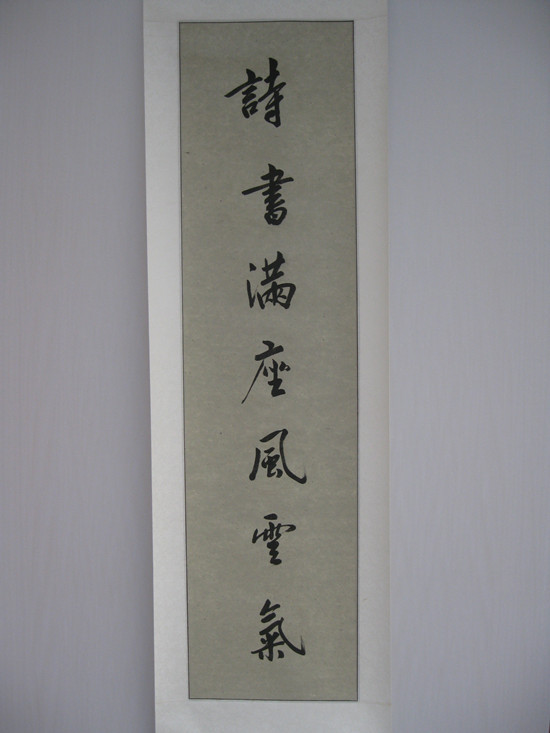 詩書滿座風雲氣